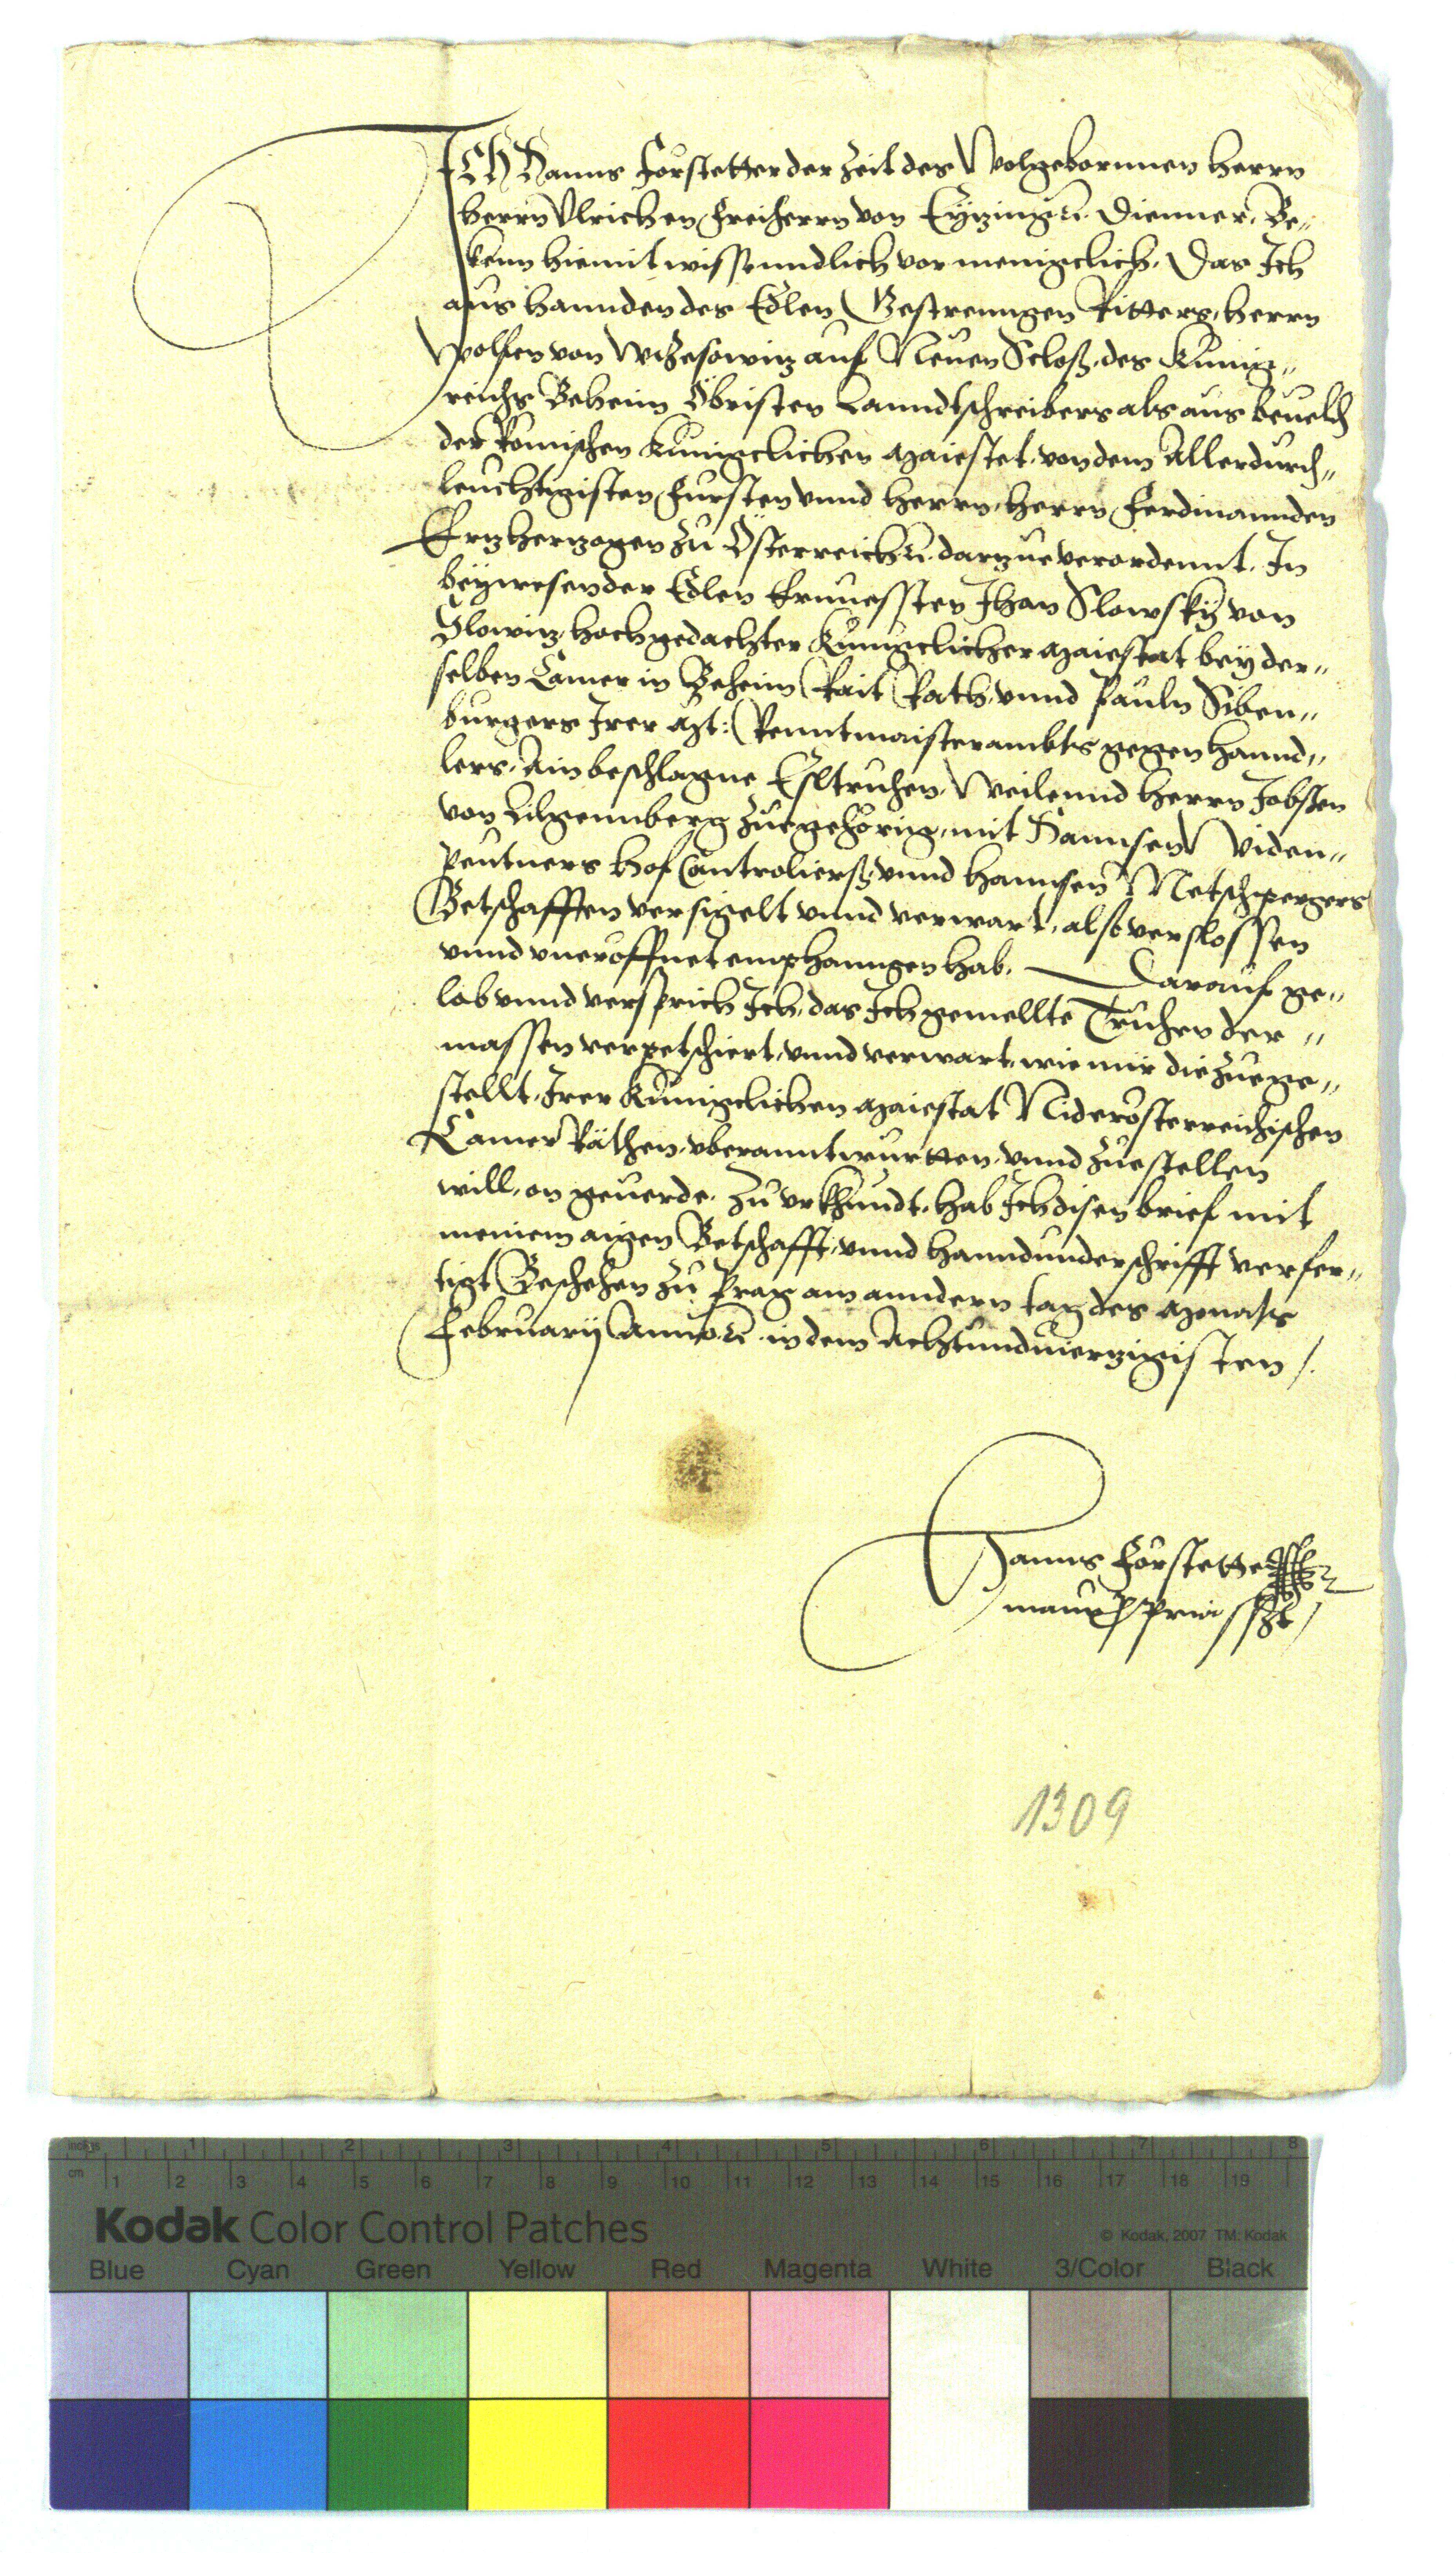 ICH Hanns Forstetter der Zeit des Wolgebornnen herrn
herrn Ulrichen Freiherrn von Eytzing etc. Dienner, Be„
kenn hiemit wissenndlich vor menigclich, Das Ich
aus hannden des Edlen Gestrenngen Ritters, herrn
Wolfen von Wrzesowitz auf Neuen Schloß, des Kunig„
reichs Beheim Öbristen Lanndtschreibers als aus beuelch
der Römischen Kunigclichen Maiestet, von dem Allerdurch„
leuchtigisten Fursten vnnd herrn, herrn Ferdinannden
Ertzhertzogen zu Österreich etc. dartzue verordennt. In
beywesen der Edlen Ernuessten Jhan Slowsky von
Slowitz, hochgedachter Kunigclicher Maiestat bey der„
selben Camer in Beheim Rait Rath, vnnd Pauln Siben„
burgers Irer Mt: Renntmaisterambts gegenhannd„
lers, Ain beschlagne Esltruhen, Weilennd herrn Jobsten
von Lilgennberg zuegehörig, mit Hannsen Viden„
peutners hof Controlierß, vnnd hannsen Metschpergers
Betschafften versigelt vnnd verwart, also verslossen
vnnd vneröffnet emphanngen hab. Darauf ge„
lob vnnd versprich Ich, das Ich gemellte Truhen der „
massen verpetschiert, vnnd verwart, wie mir die zuege„
stellt, Irer Kunigclichen Maiestat Niderösterreichischen
Camer Räthen, vberanntwurtten, vnnd zuestellen
will, on geuerde. Zu vrkhundt, hab Ich disen brief mit
meinem aigen Betschafft, vnnd hanndunderschrifft verfer„
tigt Beschehen zu Prag am anndern tag des Monats
February Anno etc. in dem Achtundvierzigisten /.
Hanns Forstetter
manu ppria sszt
1309
inches 1 2 3 4 5 6 7 8
cm 1 2 3 4 5 6 7 8 9 10 11 12 13 14 15 16 17 18 19
Kodak Color Control Patches © Kodak, 2007 TM: Kodak
Blue Cyan Green Yellow Red Magenta White 3/Color Black